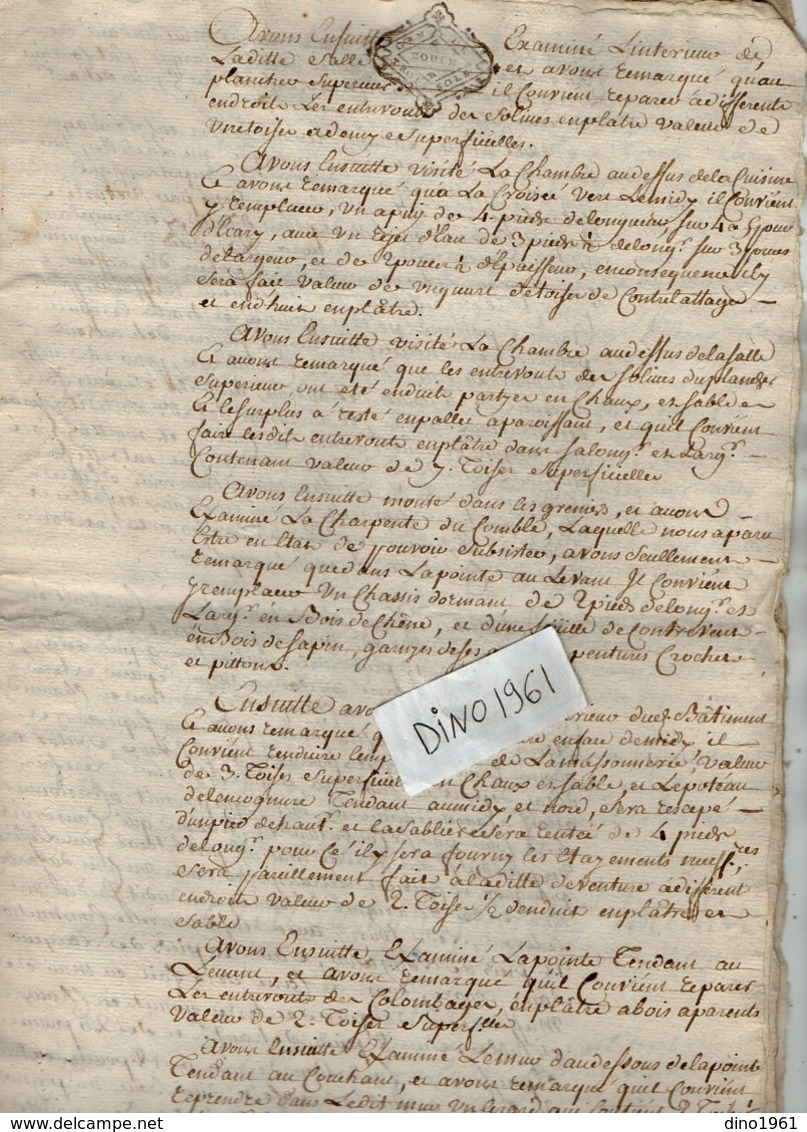 Avons Ensuitte Examiné Linterieur de
Laditte Salle et avons remarqué qu'au
plancher Superieur il Convient reparer a differents
endroits Les entrevouts des Solives en plâtre valeur de
une toise et demy Superficielles.
Avons Ensuitte visité La Chambre au dessus de la Cuisine
et avons remarqué qu'a La Croisée vers Le midy il Convient
y remplacer, un apuy de 4 pieds de longueur, sur 4 a 5 pouces
d'Ecary, avec un rejet d'Eau de 3 pieds ½ de long.r sur 3 pouces
de Largeur, et de 2 pouces ½ d'Epaisseur, en consequence il y
sera fait valeur de un quart de toise de Contrelattage
et enduit en plâtre.
Avons Ensuitte visité La Chambre au dessus de la Salle
et avons remarqué que les entrevouts des Solives du plancher
Superieur ont été enduit partye en Chaux, et Sable et
et le surplus a resté en pallet aparoissant, et quil Convient
faire lesdits entrevouts en plâtre dans sa long.r et Larg.r
Contenant valeur de 7. Toises Superficielles
Avons Ensuitte monté dans les greniers, et avons
Examiné La Charpente du Comble, Laquelle nous a paru
Estre en Etat de pouvoir Subsister, avons Seullement
remarqué que dans La pointe au Levant Il Convient
y remplacer un Chassis dormant de 2 pieds de long.r et
Larg.r en Bois de Chêne, et d'une feuille de Contrevent
en Bois de Sapin, garnyes de ses pentures Crochets
et pittons.
Ensuitte avo rieur dud. Bâtiment
et avons remarqué q en face de midy il
Convient renduire l'emp de La massonnerie, valeur
de 3. Toises Superficiel en Chaux et Sable, et Le poteau
de l'encognure Tendant au midy et nord, sera rescepé
d'un pied de haut.r et la Sabliere sera rentée de 4 pieds
de long.r pour ce il y sera fourny les Etayements necess.res
sera pareillement fait a laditte devanture a different
endroits valeur de 2. Toises ½ d'enduit en plâtre et
Sable
Avons Ensuitte, Examiné La pointe Tendant au
Levant, et avons remarqué qu'il Convient reparer
Les entrevouts des Colombages, en plâtre a bois aparents
valeur de 2. Toises Superf.lles
Avons Ensuitte Examiné Le mur d'au dessous de la pointe
Tendant au Couchant, et avons remarqué quil Convient
reprendre dans Ledit mur un
DINO1961
dino1961